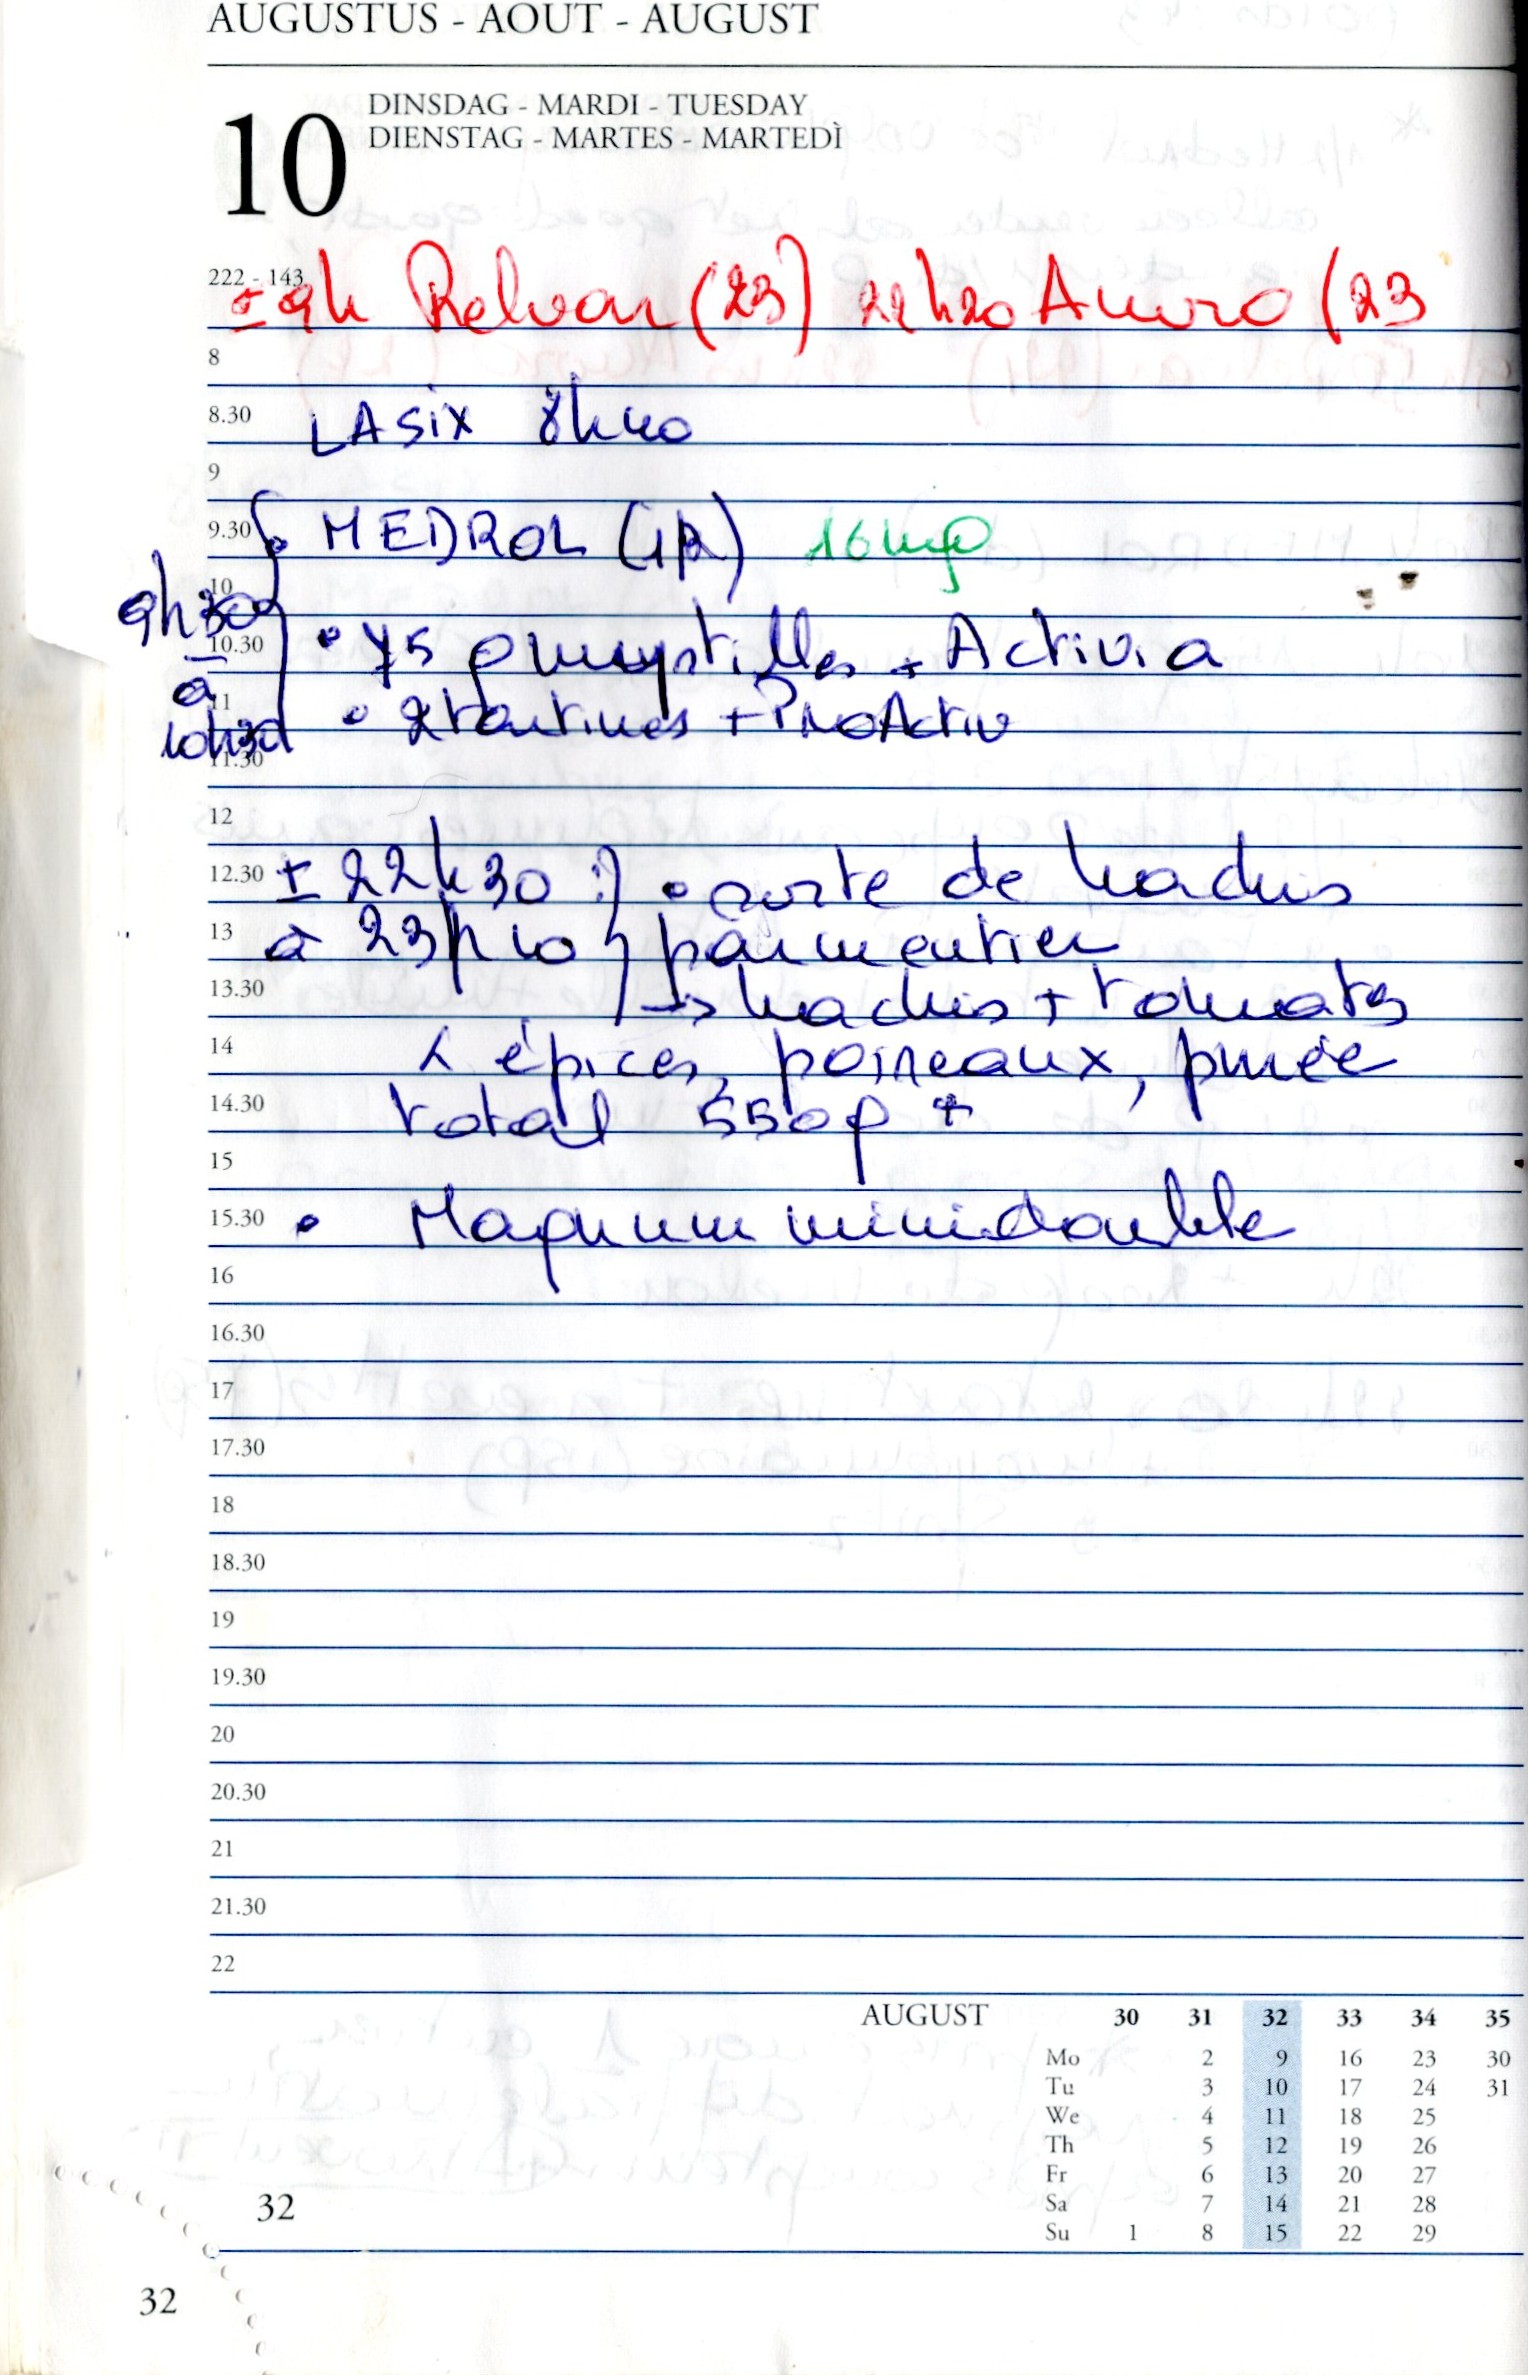 AUGUSTUS - AOUT - AUGUST
10
DINSDAG - MARDI - TUESDAY
DIENSTAG - MARTES - MARTEDÌ
222 - 143
± 9h Relvar (23) 22h20 (23
8
8.30 LASIX 8h40
9
9.30 • MEDROL 16mg
10
9h30
10.30 • + Activia
à
11 • 2 tartines + ProActiv
10h30
11.30
12
12.30 ± 22h30 : • sorte de hachis
13 à 23h10 parmentier
13.30 → hachis + tomates
14 épices, poireaux, purée
14.30 total 550g +
15
15.30 • Magnum mini double
16
16.30
17
17.30
18
18.30
19
19.30
20
20.30
21
21.30
22
AUGUST 30 31 32 33 34 35
Mo 2 9 16 23 30
Tu 3 10 17 24 31
We 4 11 18 25
Th 5 12 19 26
Fr 6 13 20 27
Sa 7 14 21 28
Su 1 8 15 22 29
32
32